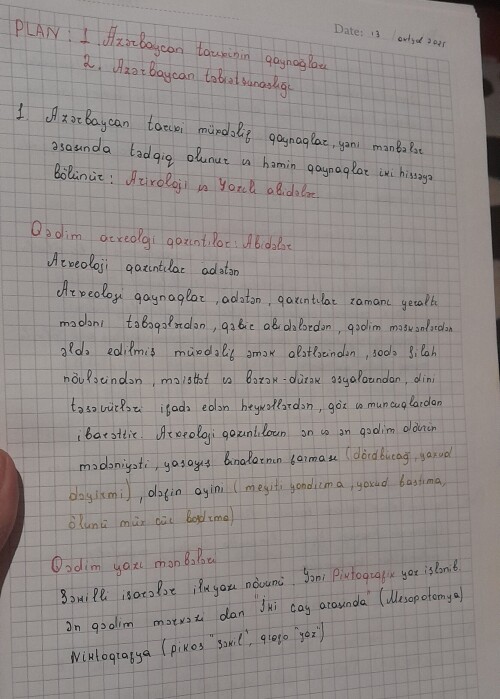 Date: 13
PLAN: 1. Azərbaycan tarixinin qaynaqları
2. Azərbaycan təbiətşünaslığı
1 Azərbaycan tarixi müxtəlif qaynaqlar, yəni mənbələr
əsasında tədqiq olunur və həmin qaynaqlar iki hissəyə
bölünür: Arxeoloji və Yazılı abidələr
Qədim arxeoloji qazıntılar: Abidələr
Arxeoloji qazıntılar adətən
Arxeoloji qaynaqlar, adətən, qazıntılar zamanı yeraltı
mədəni təbəqələrdən, qəbir abidələrdən, qədim məskənlərdən
əldə edilmiş müxtəlif əmək alətlərindən, sadə silah
növlərindən, məişət və bəzək-düzək əşyalarından, dini
təsəvvürləri ifadə edən heykəllərdən, göz və muncuqlardan
ibarəttir. Arxeoloji qazıntıların ən və ən qədim dövrün
mədəniyəti, yaşayış binalarının forması (dördbucaq, yaxud
dəyirmi), dəfin ayini (meyiti yandırma, yaxud basdırma,
ölünü müx cür basdırma)
Qədim yazı mənbələri
Şəkilli işarələr ilk yazı növünü yəni Piktoqrafik yaz işlənib.
Ən qədim mərkəzi dan "İki çay arasında" (Mesopotamya)
Niktoqrafya (pikos "şəkil", qrafo "yaz")